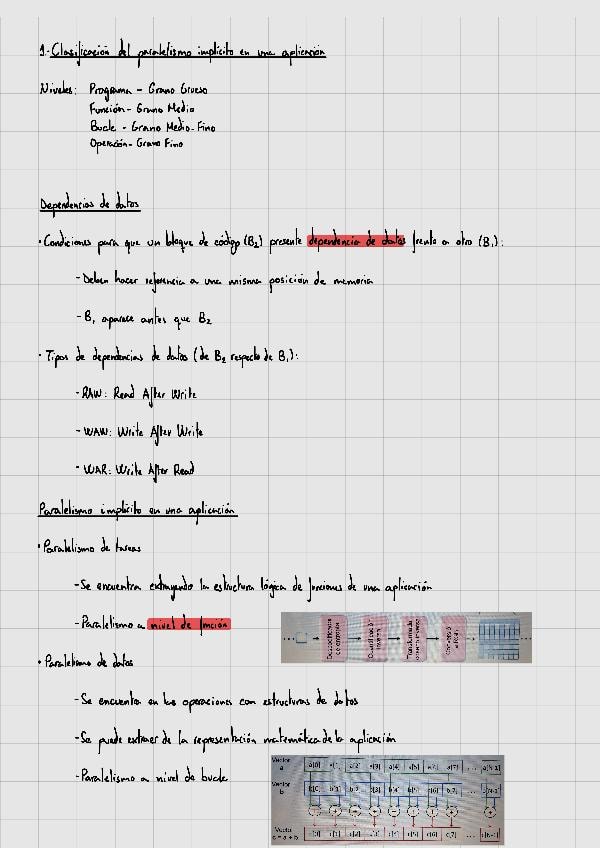 1.- Clasificación del paralelismo implícito en una aplicación
Niveles: Programa - Grano Grueso
Función - Grano Medio
Bucle - Grano Medio-Fino
Operación - Grano Fino
Dependencias de datos
· Condiciones para que un bloque de código (B2) presente dependencia de datos frente a otro (B1):
- Deben hacer referencia a una misma posición de memoria
- B1 aparece antes que B2
· Tipos de dependencias de datos (de B2 respecto de B1):
- RAW: Read After Write
- WAW: Write After Write
- WAR: Write After Read
Paralelismo implícito en una aplicación
· Paralelismo de tareas
- Se encuentra extrayendo la estructura lógica de funciones de una aplicación
- Paralelismo a nivel de función
· Paralelismo de datos
- Se encuentra en las operaciones con estructuras de datos
- Se puede extraer de la representación matemática de la aplicación
- Paralelismo a nivel de bucle
Vector a a[0] a[1] a[2] a[3] a[4] a[5] a[6] a[7] ... a[N-1]
Vector b b[0] b[1] b[2] b[3] b[4] b[5] b[6] b[7] ... b[N-1]
Vector c = a + b c[0] c[1] c[2] c[3] c[4] c[5] c[6] c[7] ... c[N-1]